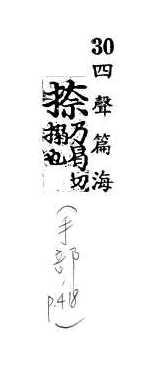 30 四聲篇海
捺乃曷切
搦也
(手部,
p.418)